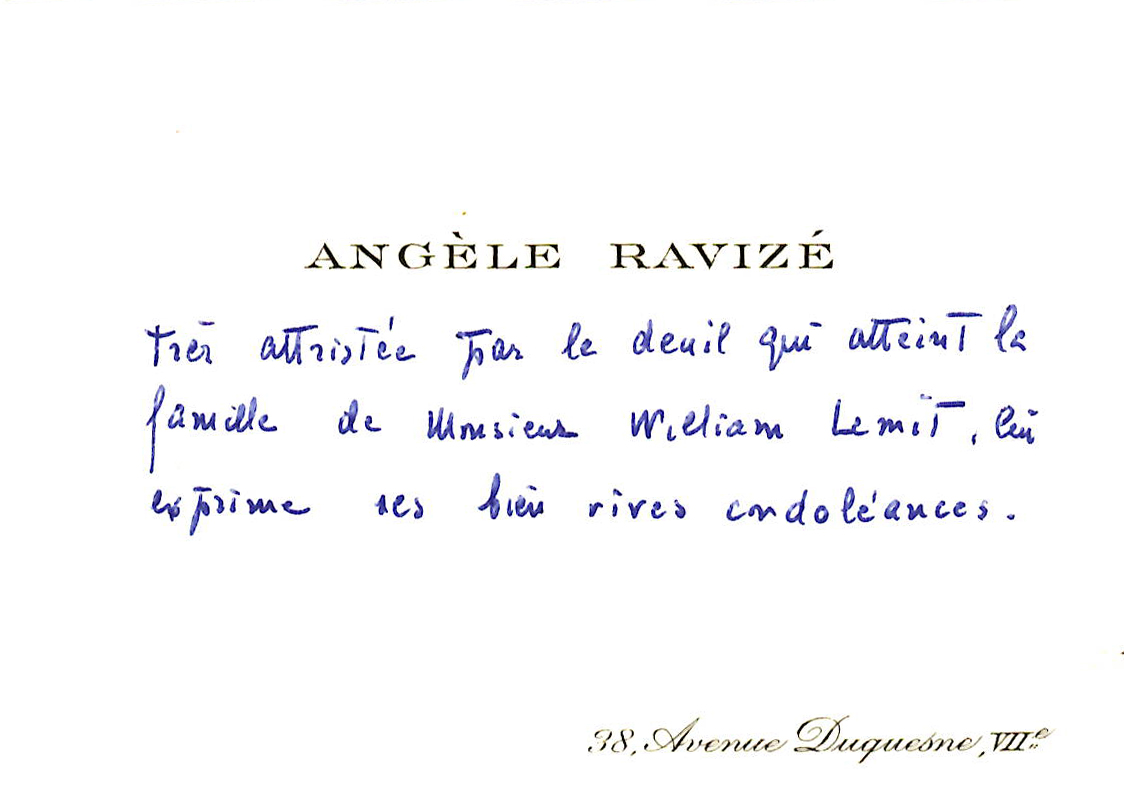 ANGÈLE RAVIZÉ
très attristée par le deuil qui atteint la
famille de Monsieur William Lemit, lui
exprime ses bien vives condoléances.
38, Avenue Duquesne, VIIe